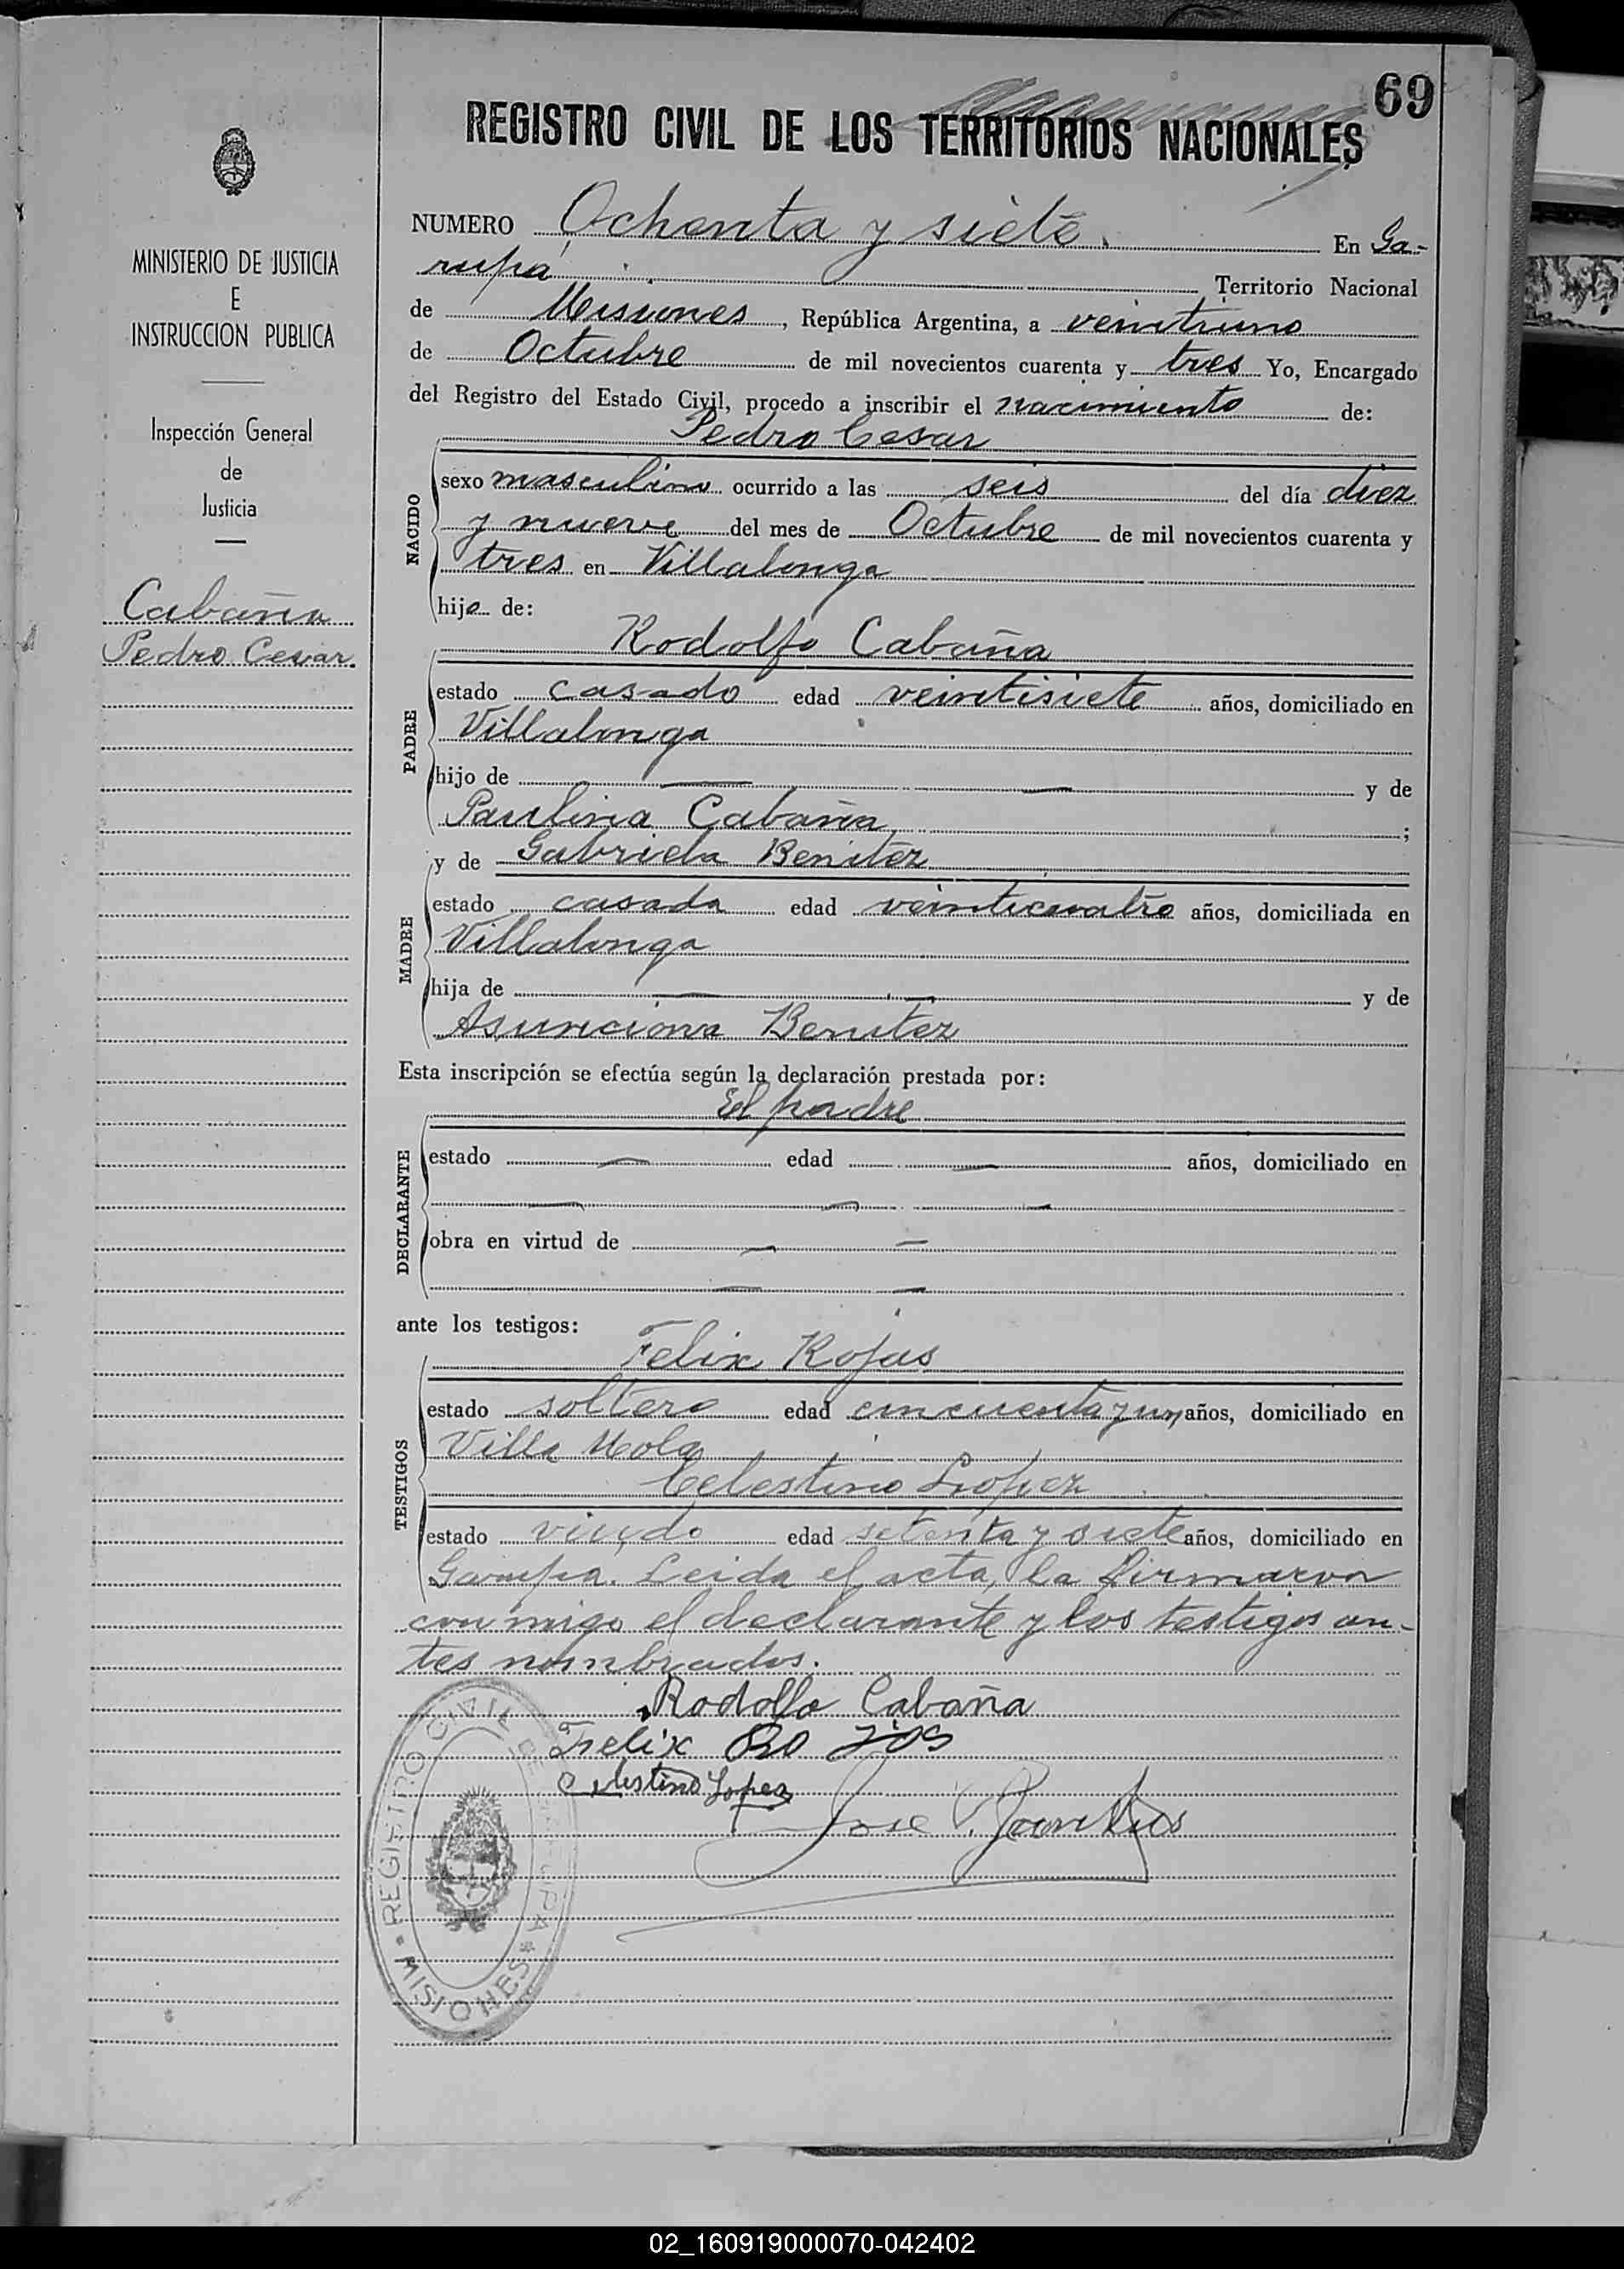 69
REGISTRO CIVIL DE LOS TERRITORIOS NACIONALES
MINISTERIO DE JUSTICIA
E
INSTRUCCION PUBLICA
Inspección General
de
Justicia
Cabaña
Pedro Cesar.
NUMERO Ochenta y siete. En Ga-
rupá Territorio Nacional
de Misiones, República Argentina, a veintiuno
de Octubre de mil novecientos cuarenta y tres Yo, Encargado
del Registro del Estado Civil, procedo a inscribir el nacimiento de:
Pedro Cesar
NACIDO
sexo masculino ocurrido a las seis del día diez
y nueve del mes de Octubre de mil novecientos cuarenta y
tres en Villalonga
hijo de:
Rodolfo Cabaña
PADRE
estado casado edad veintisiete años, domiciliado en
Villalonga
hijo de — — y de
Paulina Cabaña ;
y de Gabriela Benitez
MADRE
estado casada edad veinticuatro años, domiciliada en
Villalonga
hija de — — y de
Asunciona Benitez
Esta inscripción se efectúa según la declaración prestada por:
El padre
DECLARANTE
estado — edad — años, domiciliado en
— — —
obra en virtud de — —
— —
ante los testigos:
Felix Rojas
TESTIGOS
estado soltero edad cincuenta y un años, domiciliado en
Villa Mola
Celestino Lopez
estado viudo edad setenta y siete años, domiciliado en
Garupa. Leida el acta, la firmaron
con migo el declarante y los testigos an-
tes nombrados.
Rodolfo Cabaña
Felix Ro jos
Celestino Lopez
Jose
REGISTRO CIVIL DE GARUPA * MISIONES *
02_160919000070-042402